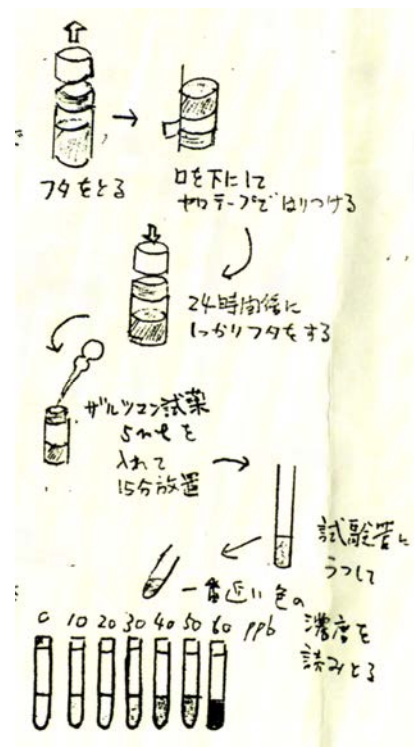 フタをとる
口を下にして
セロテープではりつける
24時間後に
しっかりフタをする
ザルツマン試薬
5mlを
入れて
15分放置
試験管に
うつして
一番近い色の
濃度を
読みとる
0 10 20 30 40 50 60 ppb